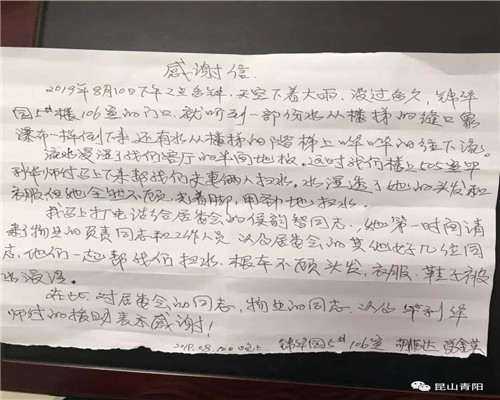 感谢信
2019年8月10日下午2点多钟,天空下着大雨,没过多久,锦华
园5#楼106室的门口,就听到一部份水从楼梯的缝口象
瀑布一样倒下来,还有水从楼梯的踏梯上"哗哗"的往下流。
流水漫湿了我们客厅的半间地板。这时我们楼上505室
华师付马上下来帮我们夫妻俩人扫水,水湿透了她的头发和
衣服但她全然不顾,光着脚,用劲地扫水。
我马上打电话给居委会的侯韵智同志,她第一时间请
来了物业的负责同志和工作人员以及居委会的其他好几位同
志,他们一起帮我们扫水,根本不顾头发、衣服、鞋子被
水浸湿。
在此,对居委会的同志,物业的同志以及华利华
师付的援助表示感谢!
2019.08.10
锦华园5#106室
昆山青阳